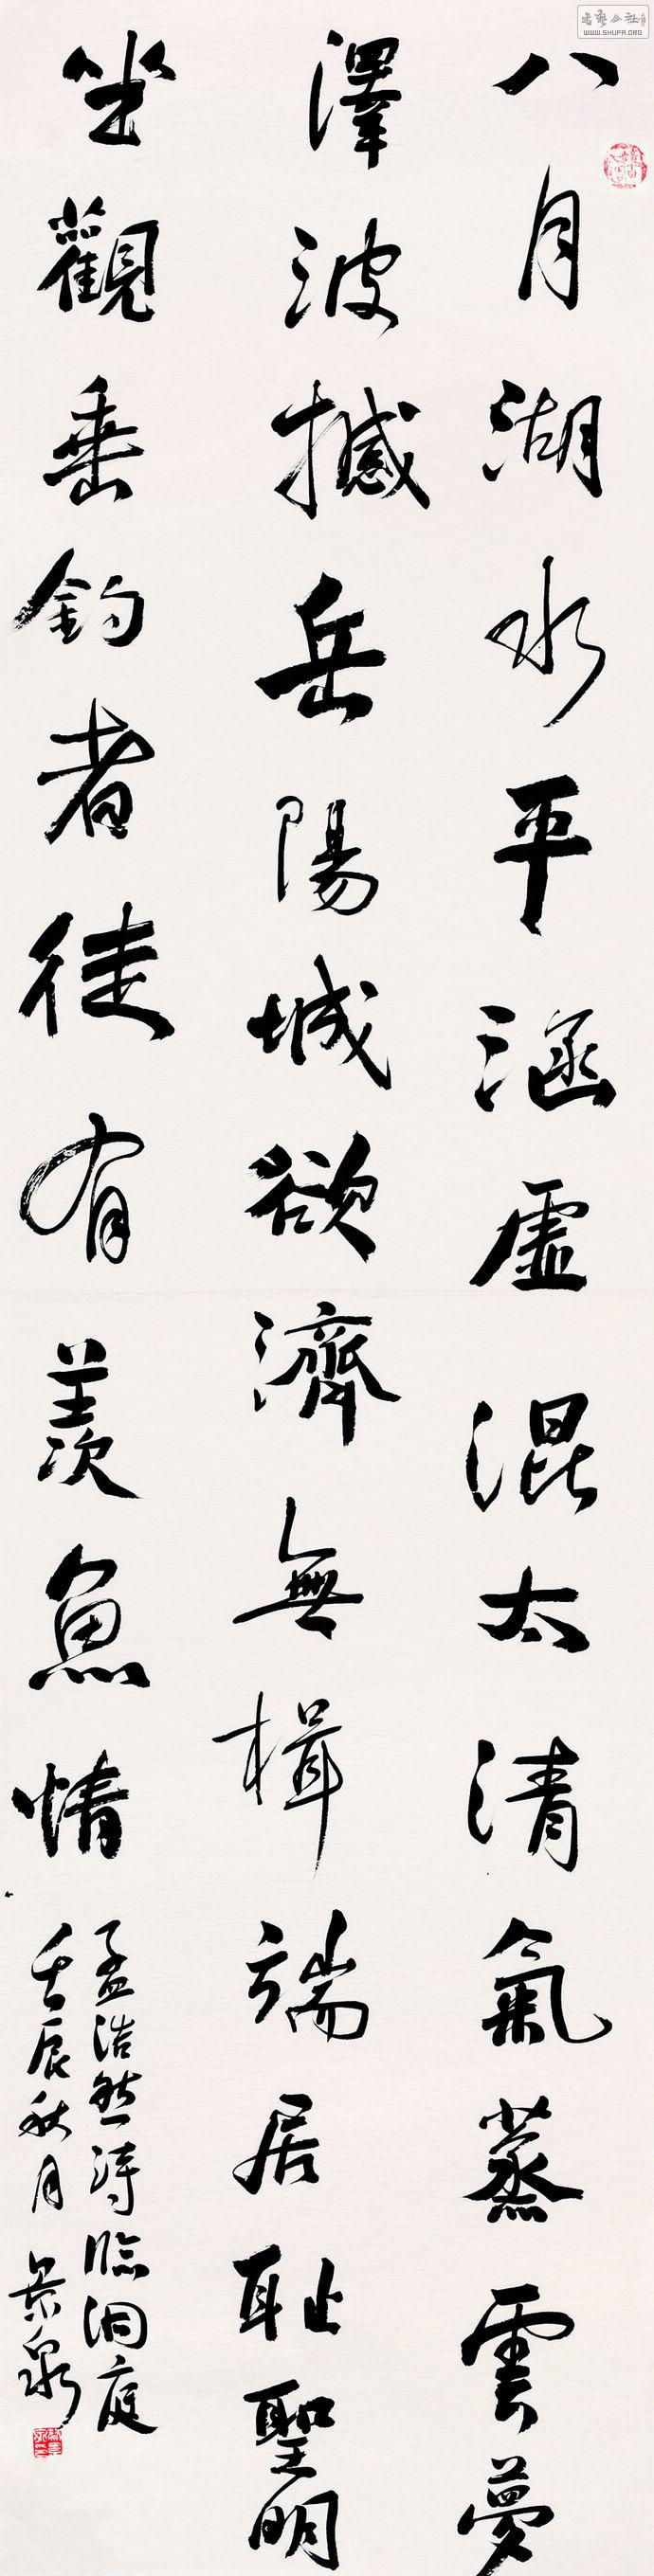 八月湖水平涵虛混太清氣蒸雲夢
澤波撼岳陽城欲濟無楫端居耻聖明
坐觀垂釣者徒有羨魚情
孟浩然詩臨洞庭
壬辰秋月景泉
WWW.SHUFA.ORG